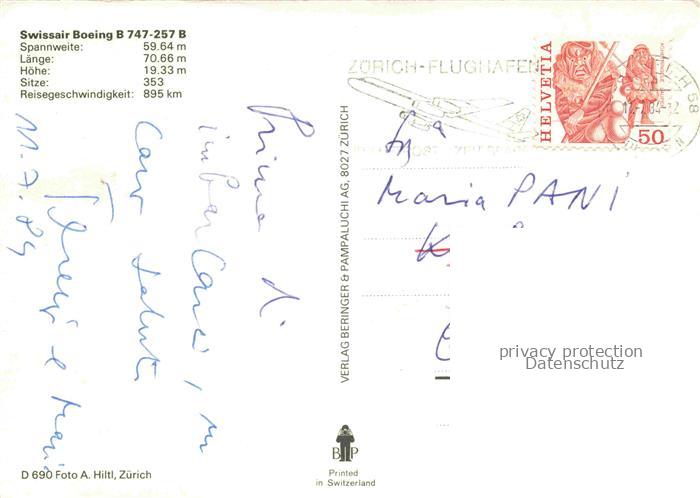 Swissair Boeing B 747-257 B
Spannweite: 59.64 m
Länge: 70.66 m
Höhe: 19.33 m
Sitze: 353
Reisegeschwindigkeit: 895 km
Prima di
imbarcarci,
Cari saluti
e Maria
11.7.84
D 690 Foto A. Hiltl, Zürich
VERLAG BERINGER & PAMPALUCHI AG, 8027 ZÜRICH
B P
Printed
in Switzerland
ZÜRICH-FLUGHAFEN
HELVETIA
50
Maria PANI
privacy protection
Datenschutz